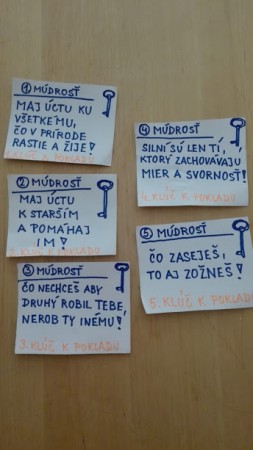 ① MÚDROSŤ
MAJ ÚCTU KU
VŠETKÉMU,
ČO V PRÍRODE
RASTIE A ŽIJE!
1. KĽÚČ K POKLADU
② MÚDROSŤ
MAJ ÚCTU
K STARŠÍM
A POMÁHAJ
IM!
2. KĽÚČ K POKLADU
③ MÚDROSŤ
ČO NECHCEŠ ABY
DRUHÝ ROBIL TEBE,
NEROB TY INÉMU!
3. KĽÚČ K POKLADU
④ MÚDROSŤ
SILNÍ SÚ LEN TÍ,
KTORÝ ZACHOVÁVAJÚ
MIER A SVORNOSŤ!
4. KĽÚČ K POKLADU
⑤ MÚDROSŤ
ČO ZASEJEŠ,
TO AJ ZOŽNEŠ!
5. KĽÚČ K POKLADU